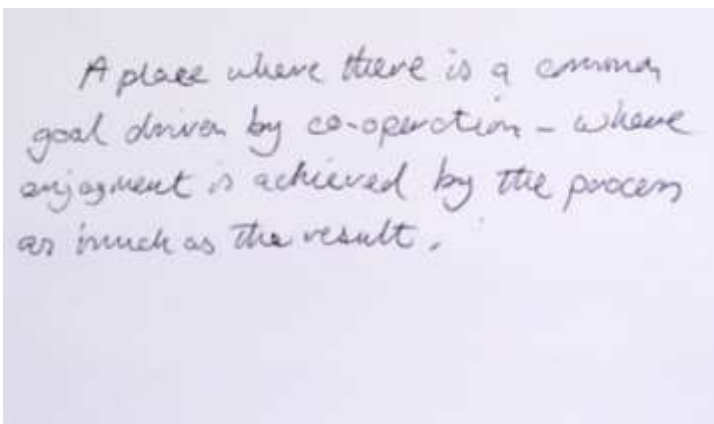 A place where there is a common
goal driven by co-operation - where
enjoyment is achieved by the process
as much as the result.